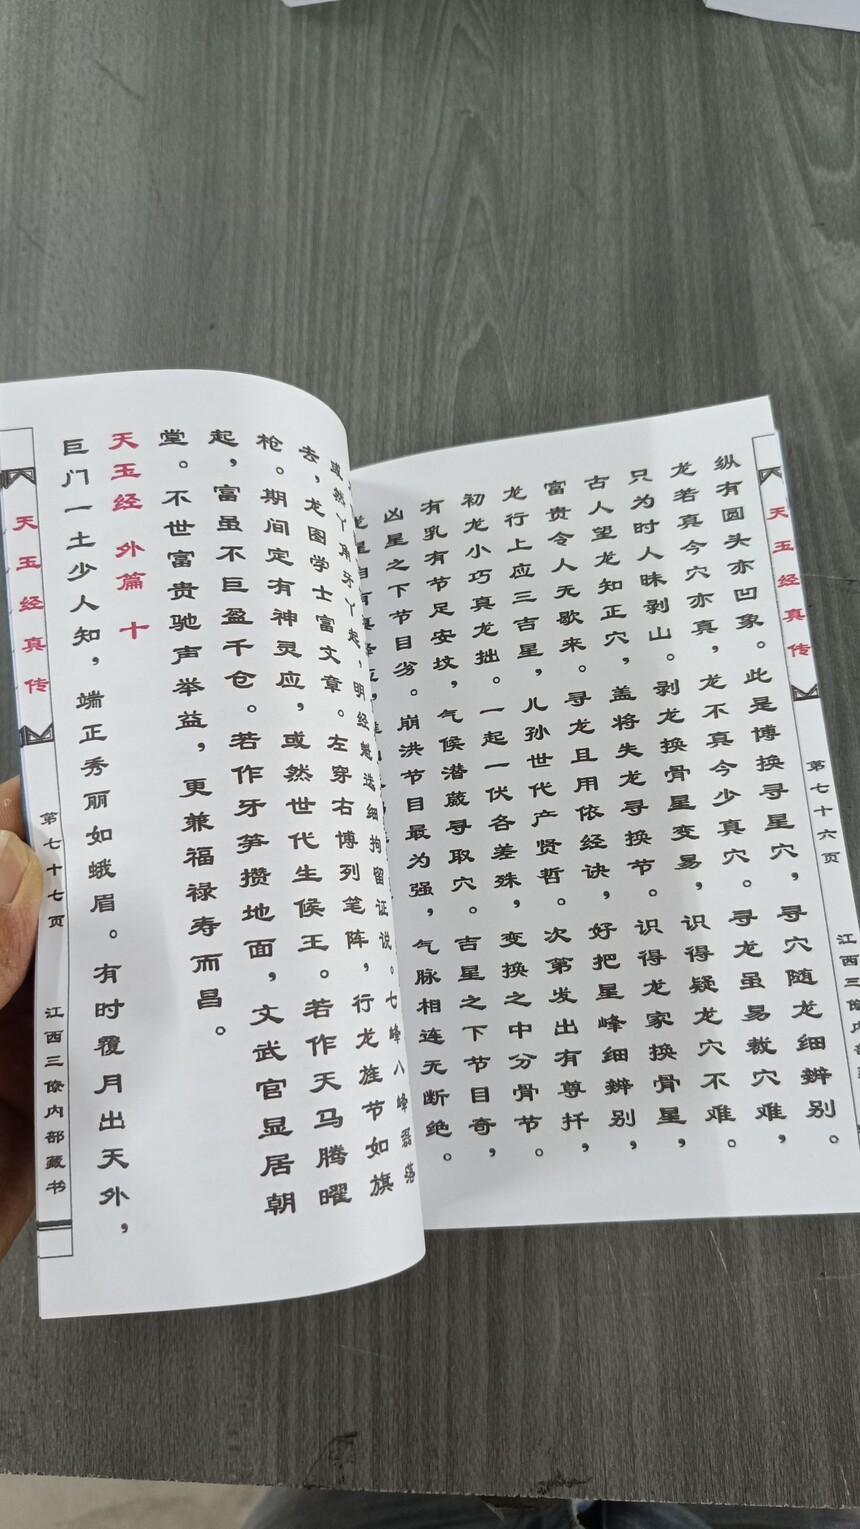 天玉经真传 第七十六页 江西三僚内部
纵有圆头亦凹象。此是博换寻星穴，寻穴随龙细辨别。
龙若真今穴亦真，龙不真今少真穴。寻龙虽易裁穴难，
只为时人昧剥山。剥龙换骨星变易，识得疑龙穴不难。
古人望龙知正穴，盖将失龙寻换节。识得龙家换骨星，
富贵令人无歇来。寻龙且用依经诀，好把星峰细辨别，
龙行上应三吉星，儿孙世代产贤哲。次第发出有尊扦，
初龙小巧真龙拙。一起一伏各差殊，变换之中分骨节。
有乳有节足安坟，气候潜蒇寻取穴。吉星之下节目奇，
凶星之下节目劣。崩洪节目最为强，气脉相连无断绝。
细拘留证说。七峰八峰磊落
丫起，明经魁选
去，龙图学士富文章。左穿右博列笔阵，行龙旌节如旗
枪。期间定有神灵应，或然世代生候王。若作天马腾曜
起，富虽不巨盈千仓。若作牙笋攒地面，文武官显居朝
堂。不世富贵驰声举益，更兼福禄寿而昌。
天玉经 外篇 十
巨门一土少人知，端正秀丽如蛾眉。有时覆月出天外，
天玉经真传 第七十七页 江西三僚内部藏书